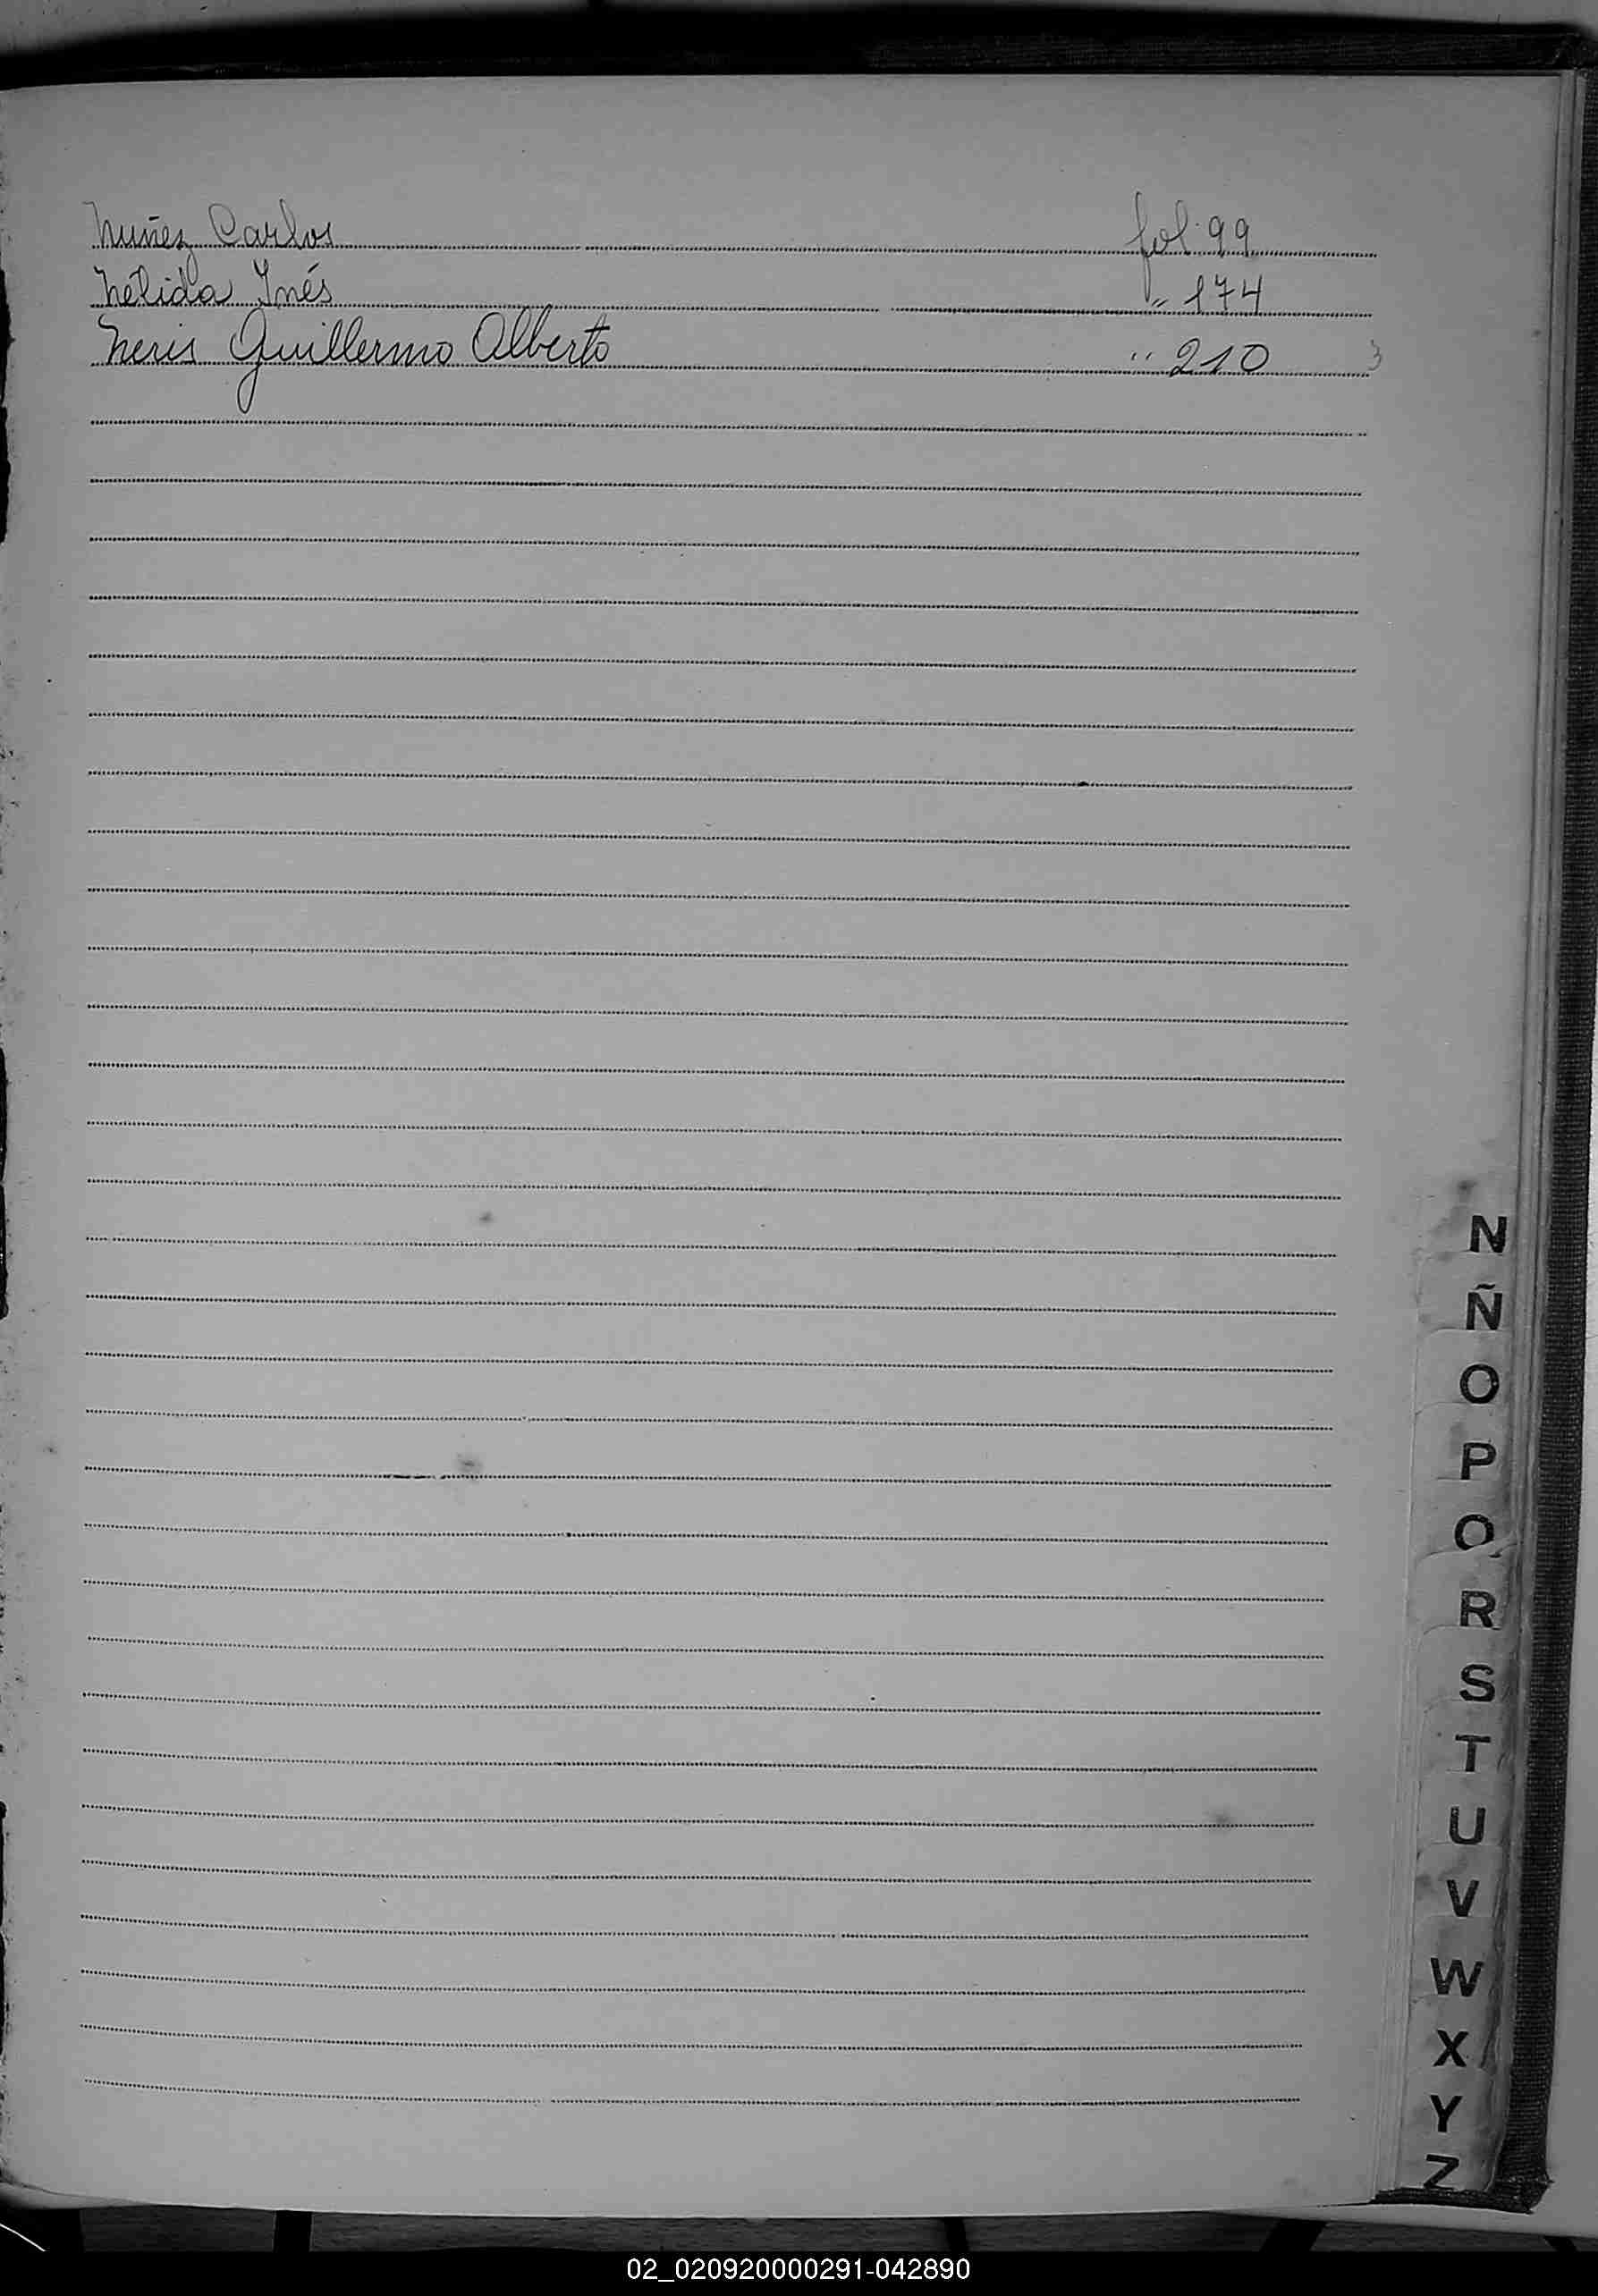 Nuñez Carlos fol. 99
Nélida Inés " 174
Neris Guillermo Alberto " 210 3
N
Ñ
O
P
Q
R
S
T
U
V
W
X
Y
Z
02_020920000291-042890